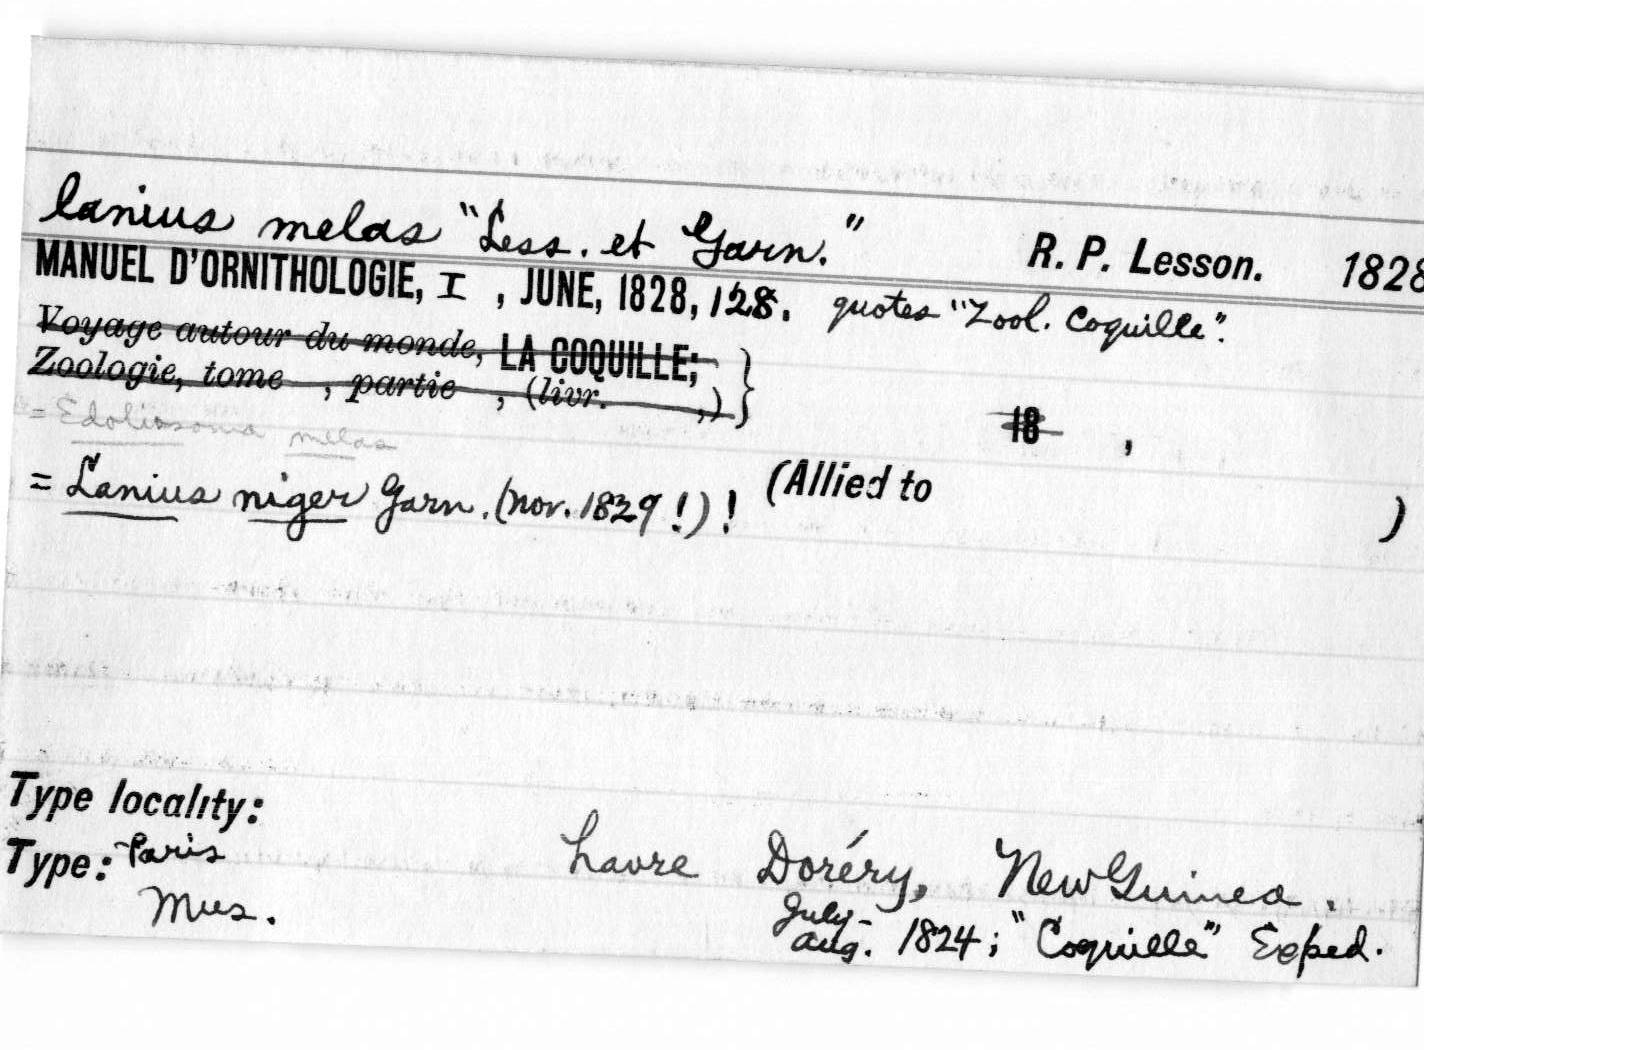 Lanius melas "Less. et Garn." R. P. Lesson. 1828
MANUEL D'ORNITHOLOGIE, I , JUNE, 1828, 128. quotes "Zool. Coquille".
Voyage autour du monde, LA COQUILLE;
Zoologie, tome , partie , (livr. ,) } 18 ,
= Edoliosoma melas
= Lanius niger Garn. (Nov. 1829!)! (Allied to )
Type locality:
Type: Paris Havre Doréry, New Guinea.
Mus. July-
Aug. 1824; "Coquille" Exped.